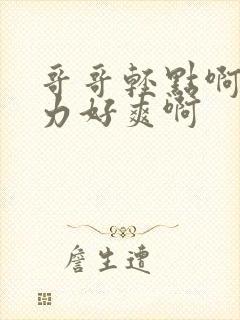 哥哥轻點啊
力好爽啊
詹生遭